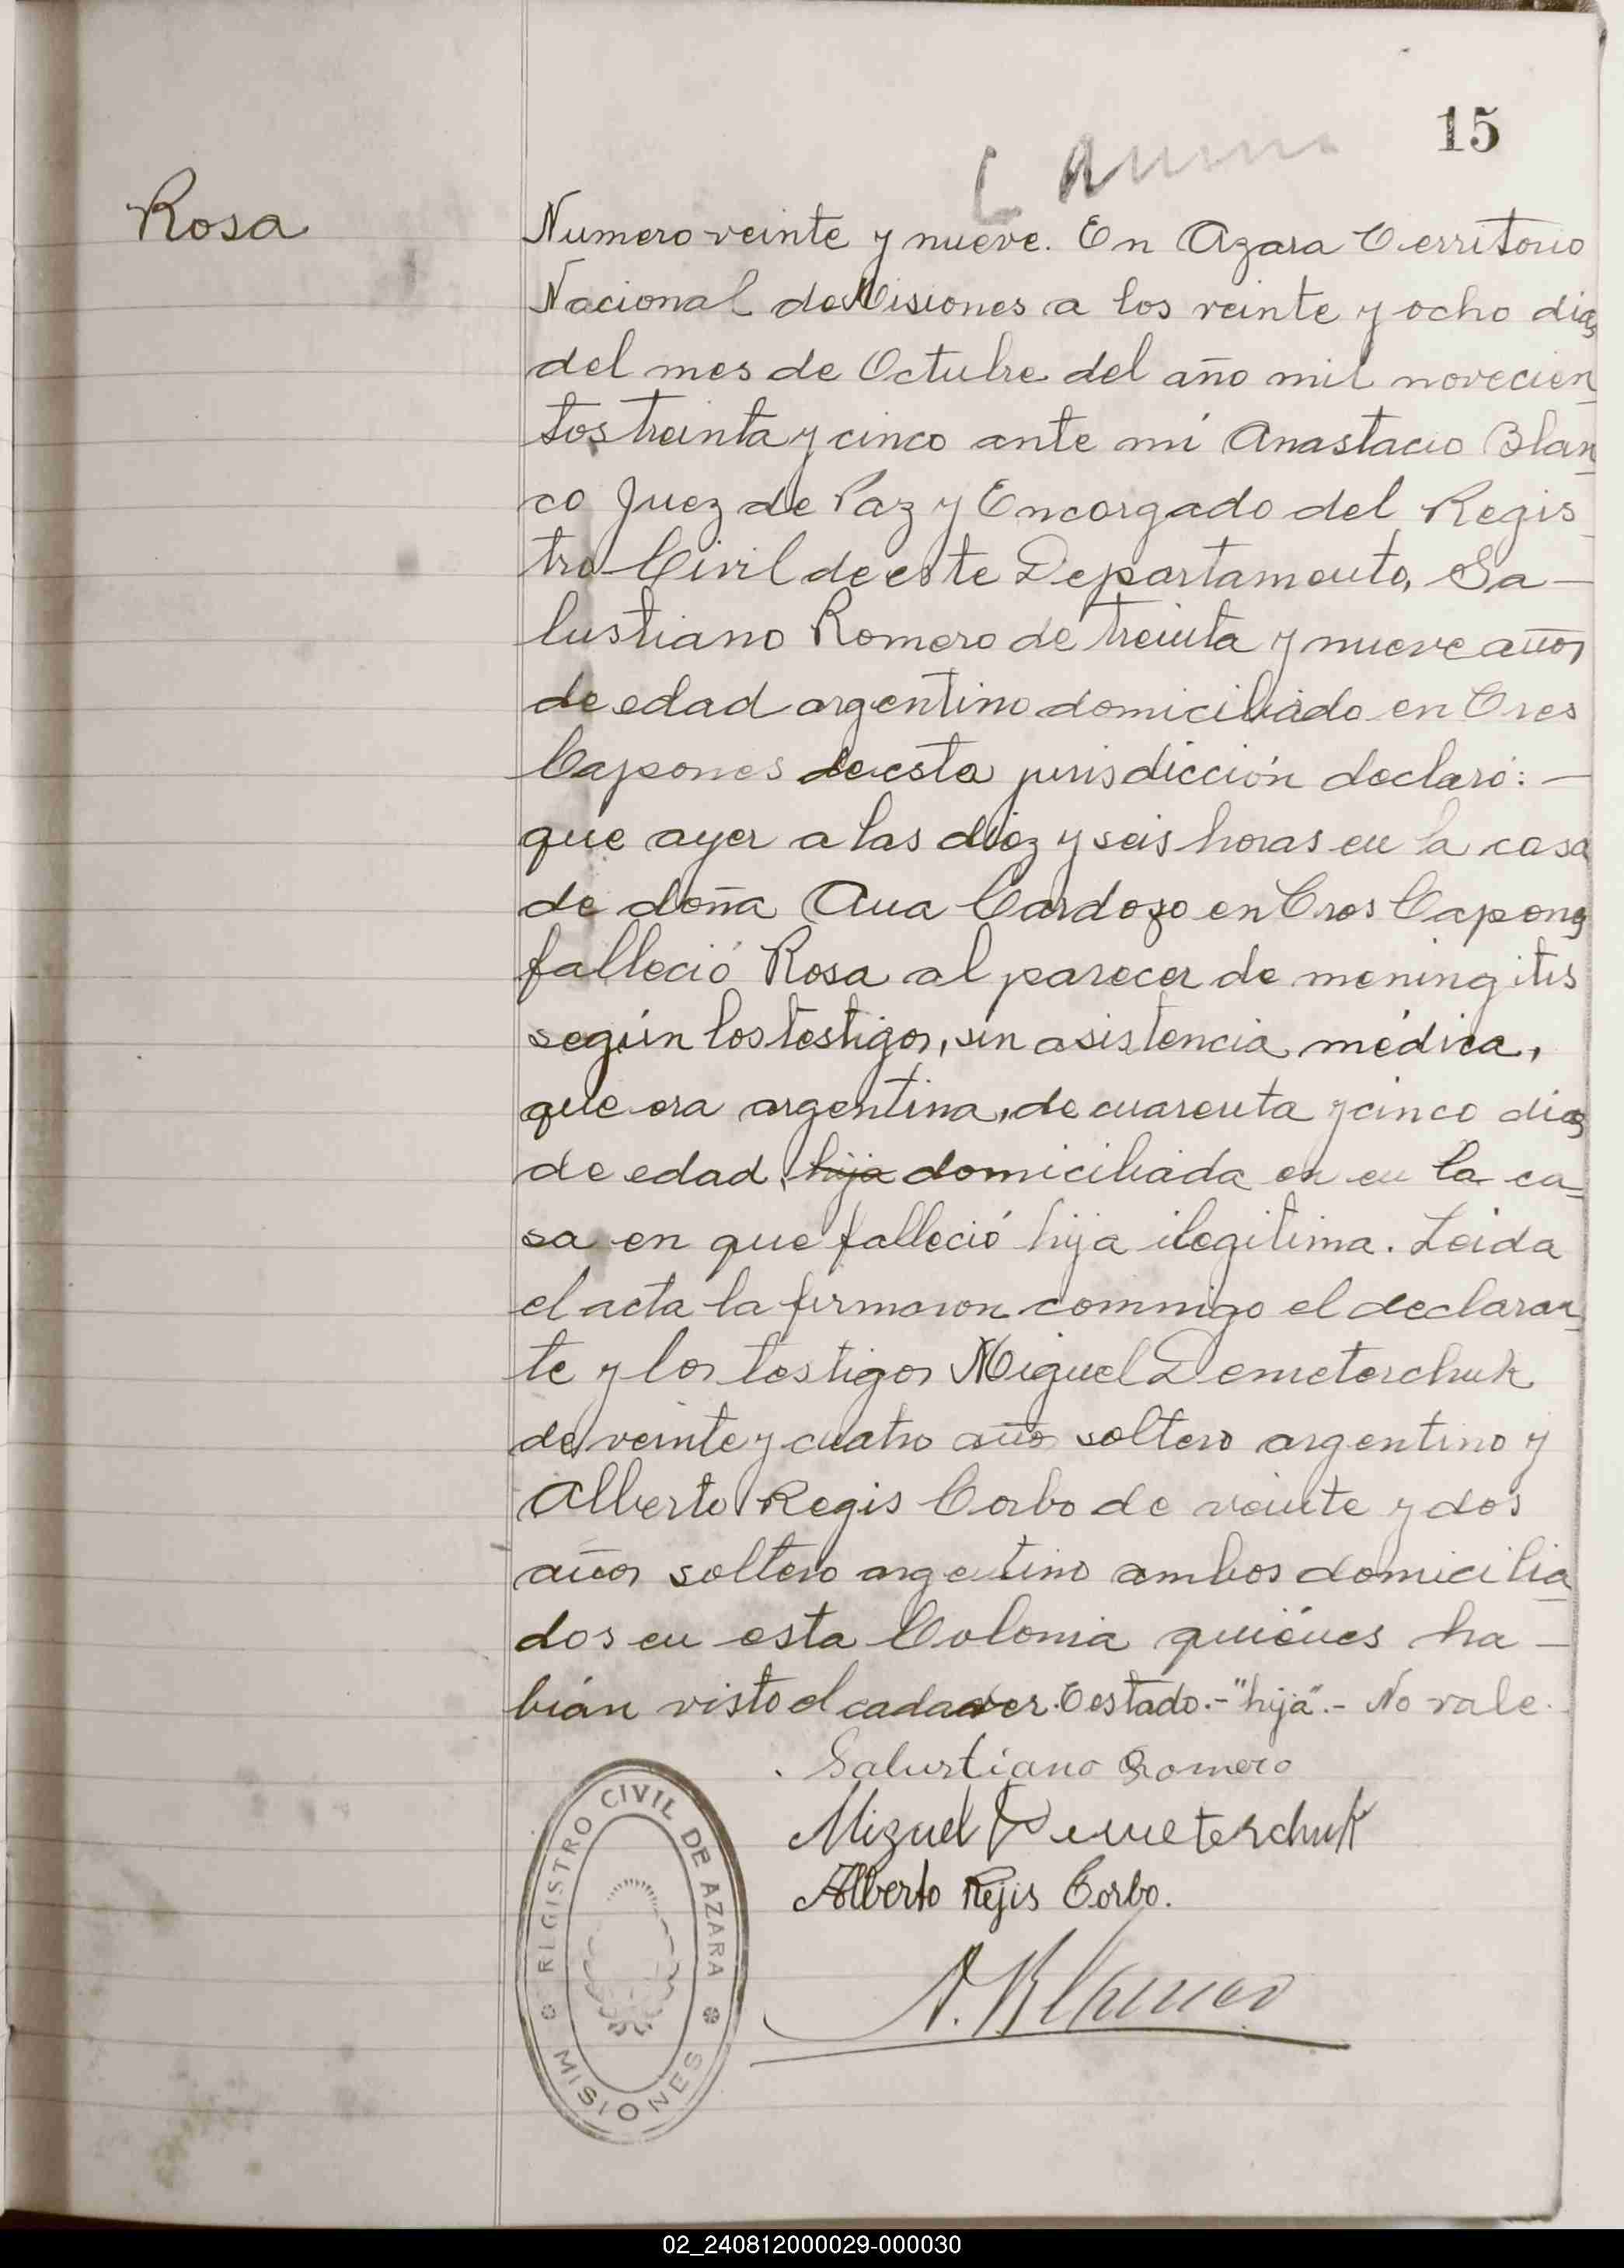 15
Rosa
Numero veinte y nueve. En Azara Territorio
Nacional de Misiones a los veinte y ocho dias
del mes de Octubre del año mil novecien
tos treinta y cinco ante mi Anastacio Blan
co Juez de Paz y Encargado del Regis
tro Civil de este Departamento, Sa-
lustiano Romero de treinta y nueve años
de edad argentino domiciliado en Tres
Capones de esta jurisdicción declaró: -
que ayer a las diez y seis horas en la casa
de doña Ana Cardozo en Tres Capones
falleció Rosa al parecer de meningitis
según los testigos, sin asistencia médica,
que era argentina, de cuarenta y cinco dias
de edad, hija domiciliada en en la ca-
sa en que falleció hija ilegitima. Leida
el acta la firmaron conmigo el declaran
te y los testigos Miguel Demeterchuk
de veinte y cuatro años soltero argentino y
Alberto Regis Corbo de veinte y dos
años soltero argentino ambos domicilia
dos en esta Colonia quiénes ha-
bián visto el cadaver. Testado.-"hija".- No vale.
Salustiano Romero
Miguel Demeterchuk
Alberto Rejis Corbo.
A. Blanco
REGISTRO CIVIL DE AZARA
MISIONES
02_240812000029-000030